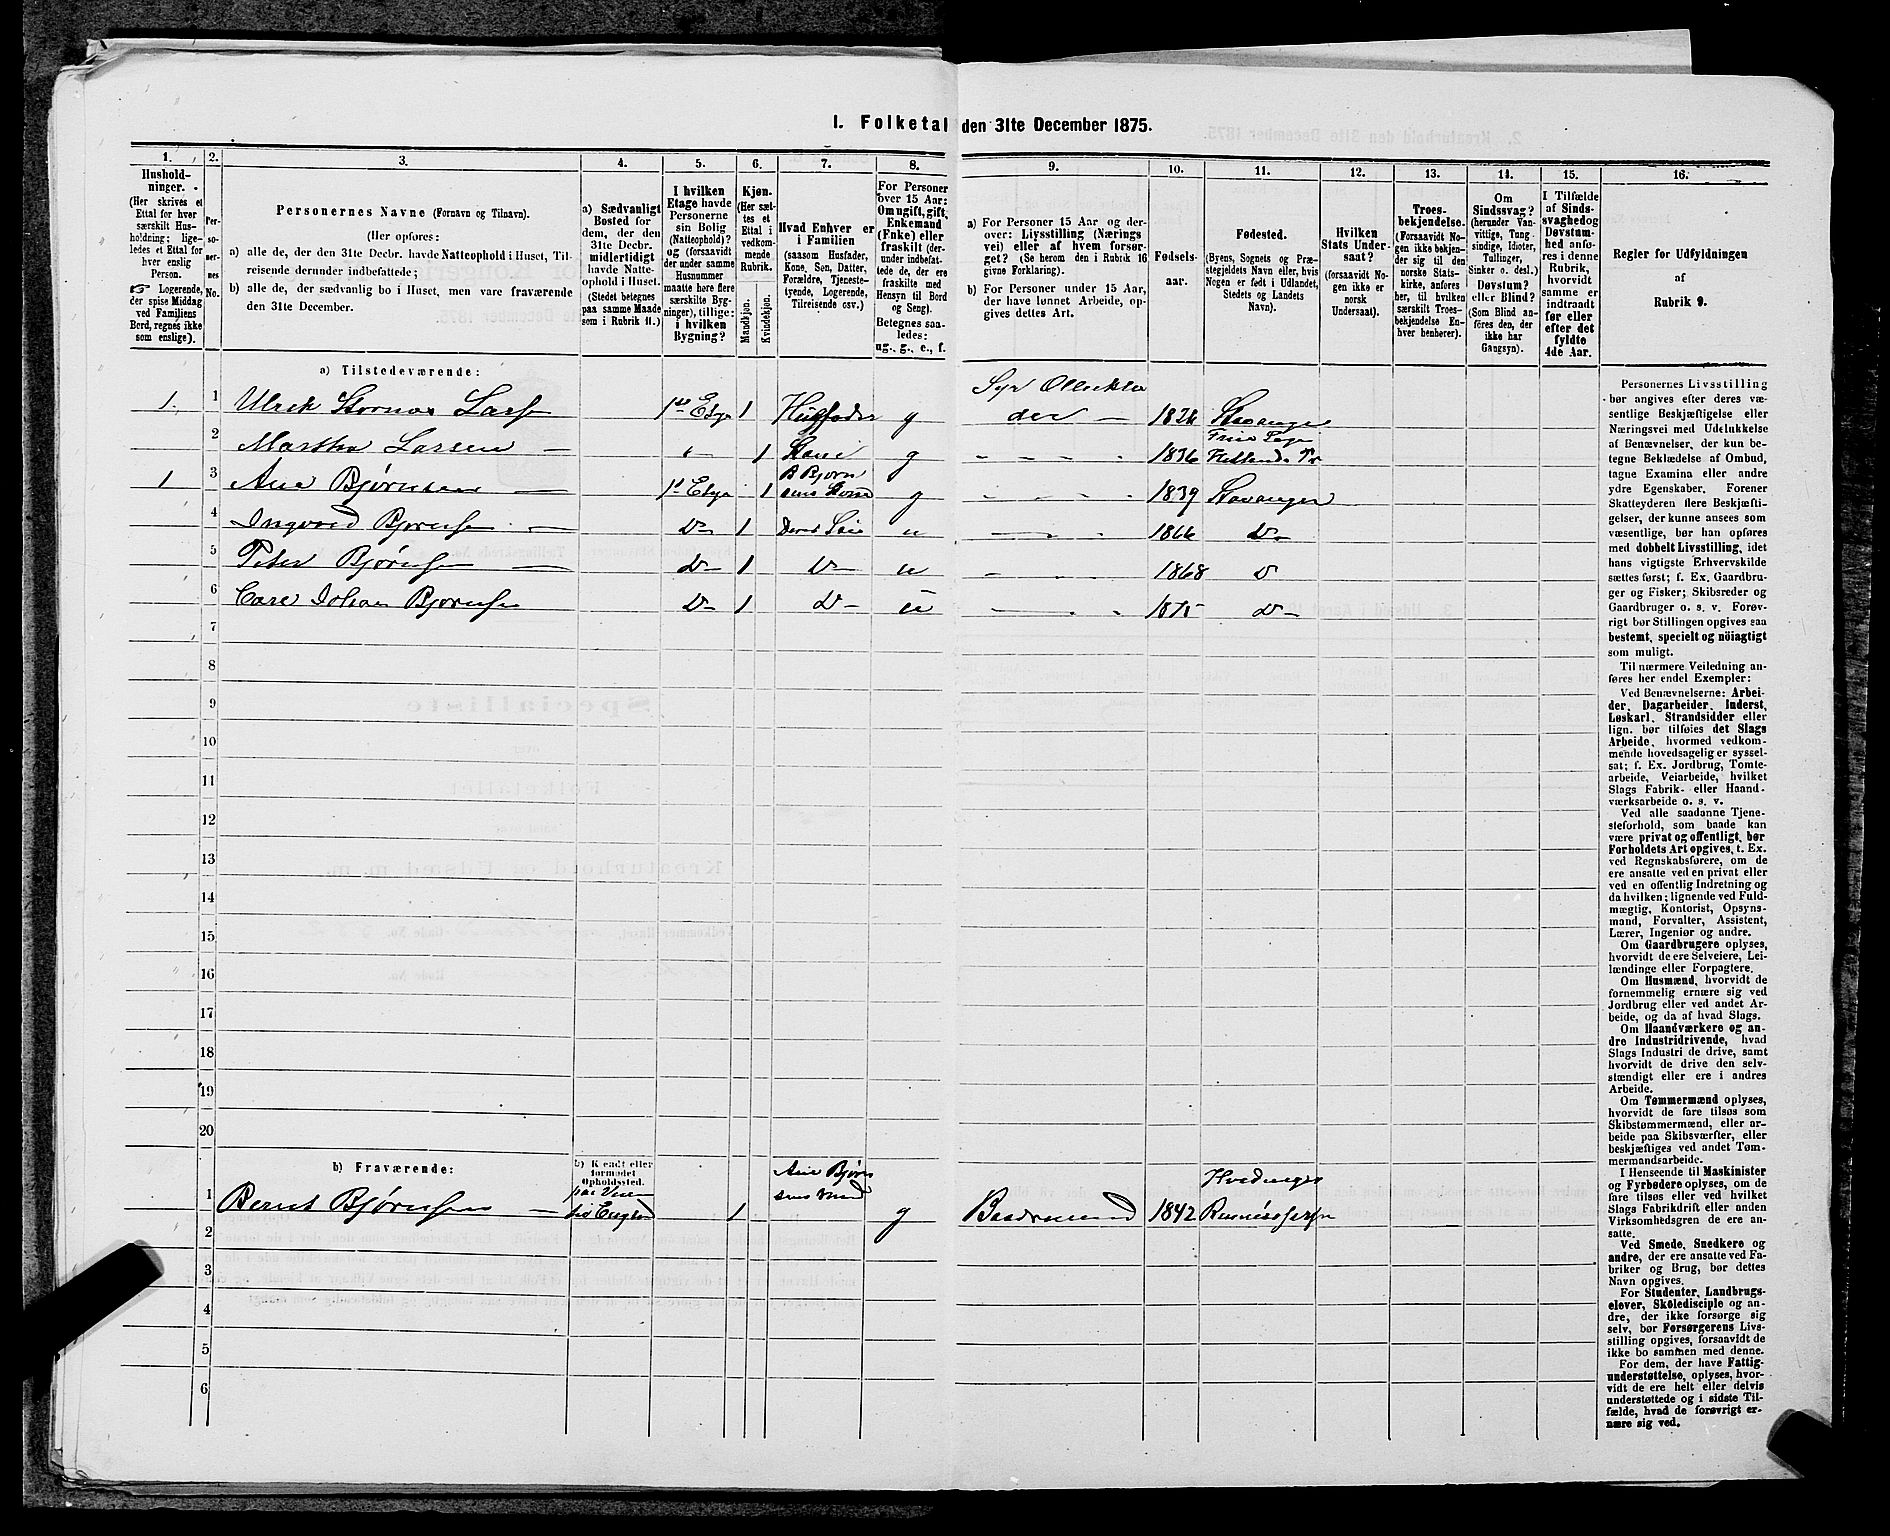 1. Folketal den 31te December 1875.
1.
2.
3.
4.
5.
6.
7.
8.
9.
10.
11.
12.
13.
14.
15.
16.
Hushold-
ninger.
(Her skrives et
Ettal for hver
særskilt Hus-
holdning; lige-
ledes et Ettal for
hver enslig
Person.
☞ Logerende,
der spise Middag
ved Familiens
Bord, regnes ikke
som enslige).
Per-
so-
ner-
nes
No.
Personernes Navne (Fornavn og Tilnavn).
(Her opføres:
a) alle de, der den 31te Decbr. havde Natteophold i Huset, Til-
reisende derunder indbefattede;
b) alle de, der sædvanlig bo i Huset, men vare fraværende
den 31te December.
a) Sædvanligt
Bosted for
dem, der den
31te Decbr.
midlertidigt
havde Natte-
ophold i Huset.
(Stedet betegnes
paa samme Maade
som i Rubrik 11.)
I hvilken
Etage havde
Personerne
sin Bolig
(Natteophold)?
og (forsaavidt
der under samme
Husnummer
maatte høre flere
særskilte Byg-
ninger), tillige:
i hvilken
Bygning?
Kjøn.
(Her sæt-
tes et
Ettal i
vedkom-
mende
Rubrik.
Mandkjøn.
Kvindekjøn.
Hvad Enhver er
i Familien
(saasom Husfader,
Kone, Søn, Datter,
Forældre, Tjeneste-
tyende, Logerende,
Tilreisende osv.)
For Personer
over 15 Aar:
Om ugift, gift,
Enkemand
(Enke) eller
fraskilt (der-
under indbefat-
tede de, der ere
fraskilte med
Hensyn til Bord
og Seng).
Betegnes saa-
ledes:
ug., g., e., f.
a) For Personer 15 Aar og der-
over: Livsstilling (Nærings
vei) eller af hvem forsør-
get? (Se herom den i Rubrik 16
givne Forklaring).
b) For Personer under 15 Aar,
der have lønnet Arbeide, op-
gives dettes Art.
Fødsels-
aar.
Fødested.
(Byens, Sognets og Præ-
stegjeldets Navn eller, hvis
Nogen er født i Udlandet,
Stedets og Landets
Navn).
Hvilken
Stats Under-
saat?
(forsaavidt No-
gen ikke er
norsk
Undersaat).
Troes-
bekjendelse.
(Forsaavidt No-
gen ikke bekjen-
der sig til den
norske Stats-
kirke, anføres
her, til hvilken
særskilt Troes-
bekjendelse En-
hver benhører).
Om
Sindssvag?
(herunder Van-
vittige, Tung-
sindige, Idioter,
Tullinger,
Sinker o. desl.)
Døvstum?
eller Blind?
(Som Blind an-
føres den, der
ikke har
Gangsyn).
I Tilfælde
af Sinds-
svaghed og
Døvstum-
hed anfø-
res i denne
Rubrik,
hvorvidt
samme er
indtraadt
før eller
efter det
fyldte
4de Aar.
Regler for Udfyldningen
af
Rubrik 9.
a) Tilstedeværende:
1. 1 Ulrek Larsen 1ste Etge 1 Husfader g 1824 Stavanger
2 Martha Larsen " 1 Kone g 1836
1 3 Ane Bjørnsen 1ste Etge 1 B Bjørn sens Kone g 1839 Stavanger
4 Ingvald Bjørnsen Do 1 Deres Søn u 1866 Do
5 Peter Bjørnsen Do 1 Do u 1868 Do
6 Carl Johan Bjørnsen Do 1 Do u 1875 Do
7
8
9
10
11
12
13
14
15
16
17
18
19
20
b) Fraværende:
b) Kjendt eller
formodet
Opholdssted.
1 Bernt Bjørnsen 1 Ane Bjørn sens Mand g 1842
2
3
4
5
6
Personernes Livsstilling
bør angives efter deres væ-
sentlige Beskjæftigelse eller
Næringsvei med Udelukkelse
af Benævnelser, der kun be-
tegne Beklædelse af Ombud,
tagne Examina eller andre
ydre Egenskaber. Forener
Skatteyderen flere Beskjæfti-
gelser, der kunne ansees som
væsentlige, bør han opføres
med dobbelt Livsstilling, idet
hans vigtigste Erhvervskilde
sættes først; f. Ex. Gaardbru-
ger og Fisker; Skibsreder og
Gaardbruger o. s. v. Forøv-
rigt bør Stillingen opgives saa
bestemt, specielt og nöiagtigt
som muligt.
Til nærmere Veiledning an-
føres her endel Exempler:
Ved Benævnelserne: Arbei-
der, Dagarbeider, Inderst,
Løskarl, Strandsidder eller
lign. bør tilføies det Slags
Arbeide, hvormed vedkom-
mende hovedsagelig er syssel-
sat; f. Ex. Jordbrug, Tomte-
arbeide, Veiarbeide, hvilket
Slags Fabrik- eller Haand-
værksarbeide o. s. v.
Ved alle saadanne Tjene-
steforhold, som baade kan
være privat og offentligt, bør
Forholdets Art opgives, t. Ex.
ved Regnskabsførere, om de
ere ansatte ved en privat eller
ved en offentlig Indretning og
da hvilken; lignende ved Fuld-
mægtig, Kontorist, Opsyns-
mand, Forvalter, Assistent,
Lærer, Ingeniør og andre.
Om Gaardbrugere oplyses,
hvorvidt de ere Selveiere, Lei-
lændinge eller Forpagtere.
Om Husmænd, hvorvidt de
fornemmelig ernære sig ved
Jordbrug eller ved andet Ar-
beide, og da af hvad Slags.
Om Haandværkere og an-
dre Industridrivende, hvad
Slags Industri de drive, samt
hvorvidt de drive den selv-
stændigt eller ere i andres
Arbeide.
Om Tømmermænd oplyses,
hvorvidt de fare tilsøs som
Skibstømmermænd, eller ar-
beide paa Skibsværfter, eller
beskjæftiges ved andet Tøm-
mermandsarbeide.
I Henseende til Maskinister
og Fyrbødere oplyses, om de
fare tilsøs eller ved hvilket
Slags Fabrikdrift eller anden
Virksomhedsgren de ere an-
satte.
Ved Smede, Snedkere og
andre, der ere ansatte ved Fa-
briker og Brug, bør dettes
Navn opgives.
For Studenter, Landbrugs-
elever, Skoledisciple og an-
dre, der ikke forsørge sig
selv, bør Forsørgerens Livs-
stilling opgives, forsaavidt de
ikke bo sammen med denne.
For dem, der have Fattig-
understøttelse, oplyses, hvor-
vidt de ere helt eller delvis
understøttede og i sidste Til-
fælde, hvad de forøvrigt er-
nære sig ved.